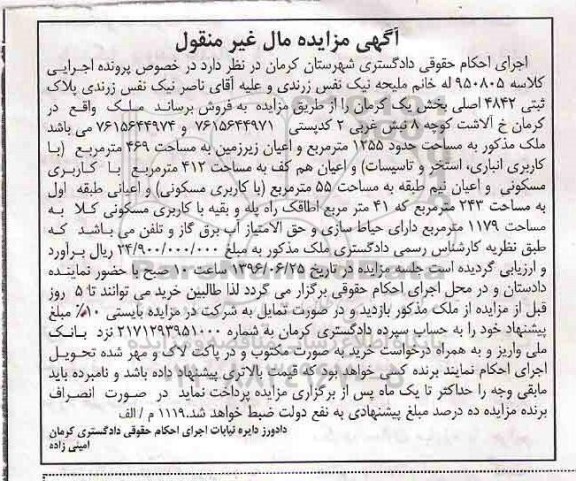 آگهی مزایده مال غیر منقول
اجرای احکام حقوقی دادگستری شهرستان کرمان در نظر دارد در خصوص پرونده اجرایی
کلاسه ۹۵۰۸۰۵ له خانم ملیحه نیک نفس زرندی و علیه آقای ناصر نیک نفس زرندی پلاک
ثبتی ۴۸۴۲ اصلی بخش یک کرمان را از طریق مزایده به فروش برساند ملک واقع در
کرمان خ آلاشت کوچه ۸ نبش غربی ۲ کدپستی ۷۶۱۵۶۴۴۹۷۱ و ۷۶۱۵۶۴۴۹۷۴ می باشد
ملک مذکور به مساحت حدود ۱۲۵۵ مترمربع و اعیان زیرزمین به مساحت ۴۶۹ مترمربع (با
کاربری انباری، استخر و تاسیسات) و اعیان هم کف به مساحت ۴۱۲ مترمربع با کاربری
مسکونی و اعیان نیم طبقه به مساحت ۵۵ مترمربع (با کاربری مسکونی) و اعیانی طبقه اول
به مساحت ۲۴۳ مترمربع که ۴۱ متر مربع اطاقک راه پله و بقیه با کاربری مسکونی کلا به
مساحت ۱۱۷۹ مترمربع دارای حیاط سازی و حق الامتیاز آب برق گاز و تلفن می باشد که
طبق نظریه کارشناس رسمی دادگستری ملک مذکور به مبلغ ۲۴/۹۰۰/۰۰۰/۰۰۰ ریال برآورد
و ارزیابی گردیده است جلسه مزایده در تاریخ ۱۳۹۶/۰۶/۲۵ ساعت ۱۰ صبح با حضور نماینده
دادستان و در محل اجرای احکام حقوقی برگزار می گردد لذا طالبین خرید می توانند تا ۵ روز
قبل از مزایده از ملک مذکور بازدید و در صورت تمایل به شرکت در مزایده بایستی ۱۰٪ مبلغ
پیشنهاد خود را به حساب سپرده دادگستری کرمان به شماره ۲۱۷۱۲۹۳۹۵۱۰۰۰ نزد بانک
ملی واریز و به همراه درخواست خرید به صورت مکتوب و در پاکت لاک و مهر شده تحویل
اجرای احکام نمایند برنده کسی خواهد بود که قیمت بالاتری پیشنهاد داده باشد و نامبرده باید
مابقی وجه را حداکثر تا یک ماه پس از برگزاری مزایده پرداخت نماید در صورت انصراف
برنده مزایده ده درصد مبلغ پیشنهادی به نفع دولت ضبط خواهد شد. ۱۱۱۹ م / الف
دادورز دایره نیابات اجرای احکام حقوقی دادگستری کرمان
امینی زاده